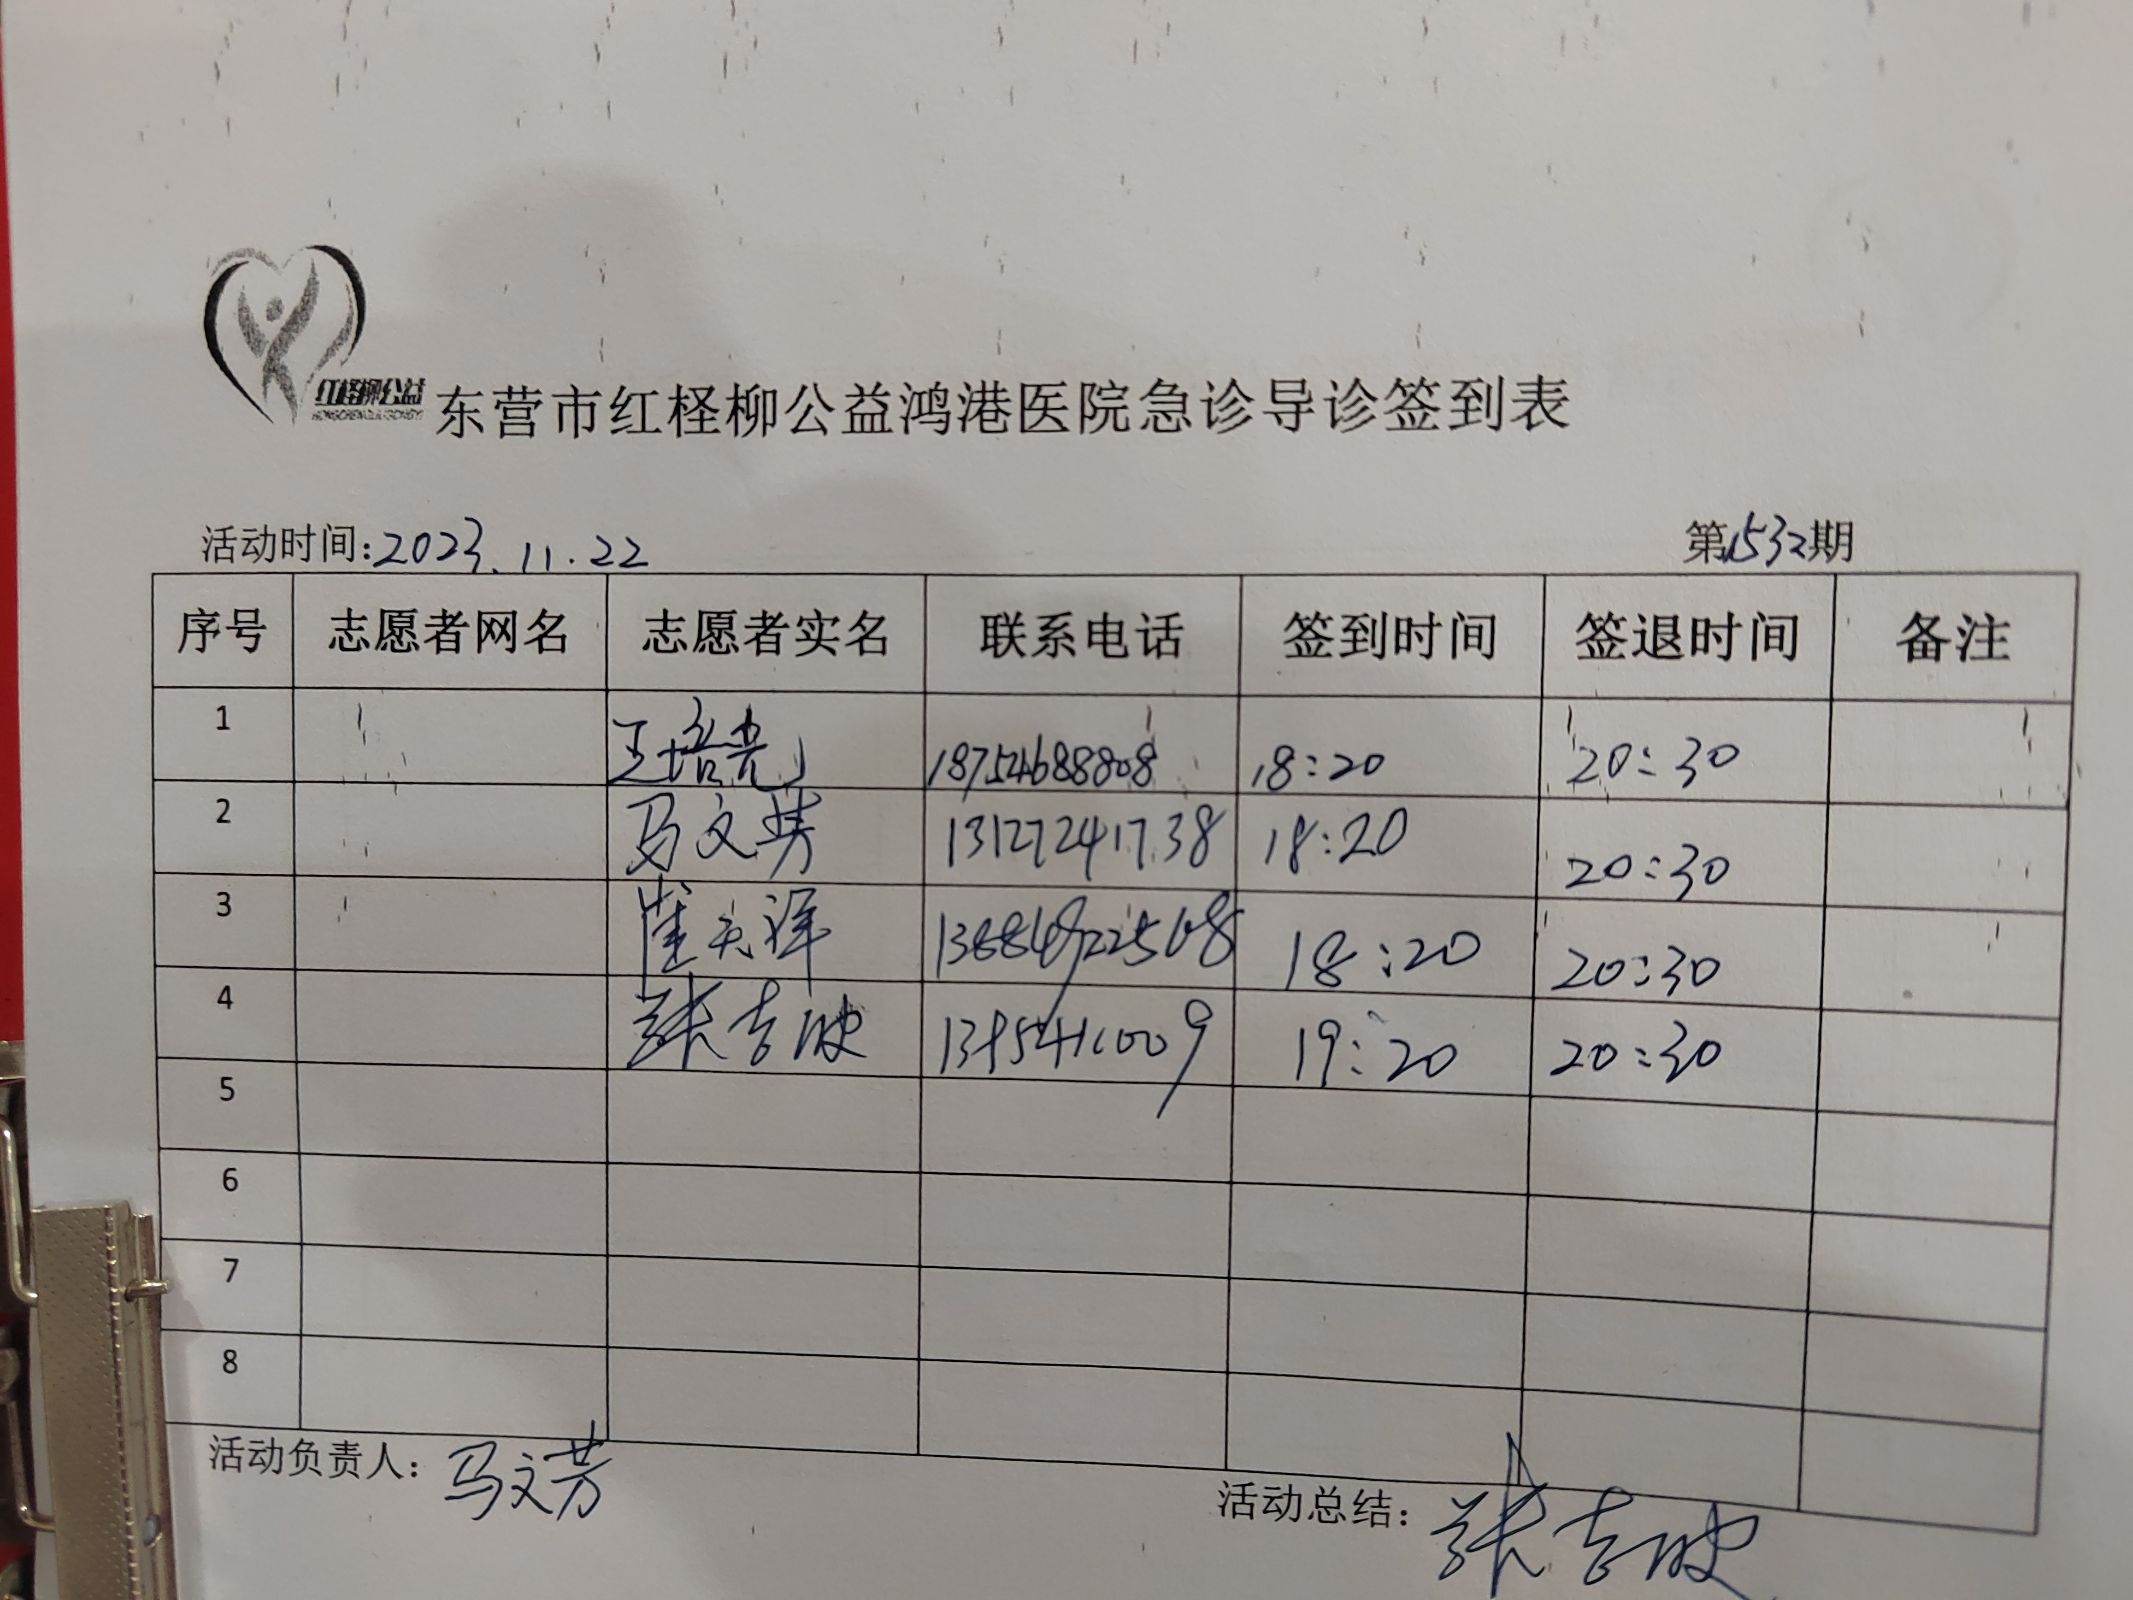 红柽柳公益
东营市红柽柳公益鸿港医院急诊导诊签到表
活动时间:2023.11.22 第1532期
序号 志愿者网名 志愿者实名 联系电话 签到时间 签退时间 备注
1 王培亮 18754688808 18:20 20:30
2 马文芳 13127241738 18:20 20:30
3 崔天泽 18:20 20:30
4 张吉 19:20 20:30
5
6
7
8
活动负责人: 马文芳
活动总结: 张吉